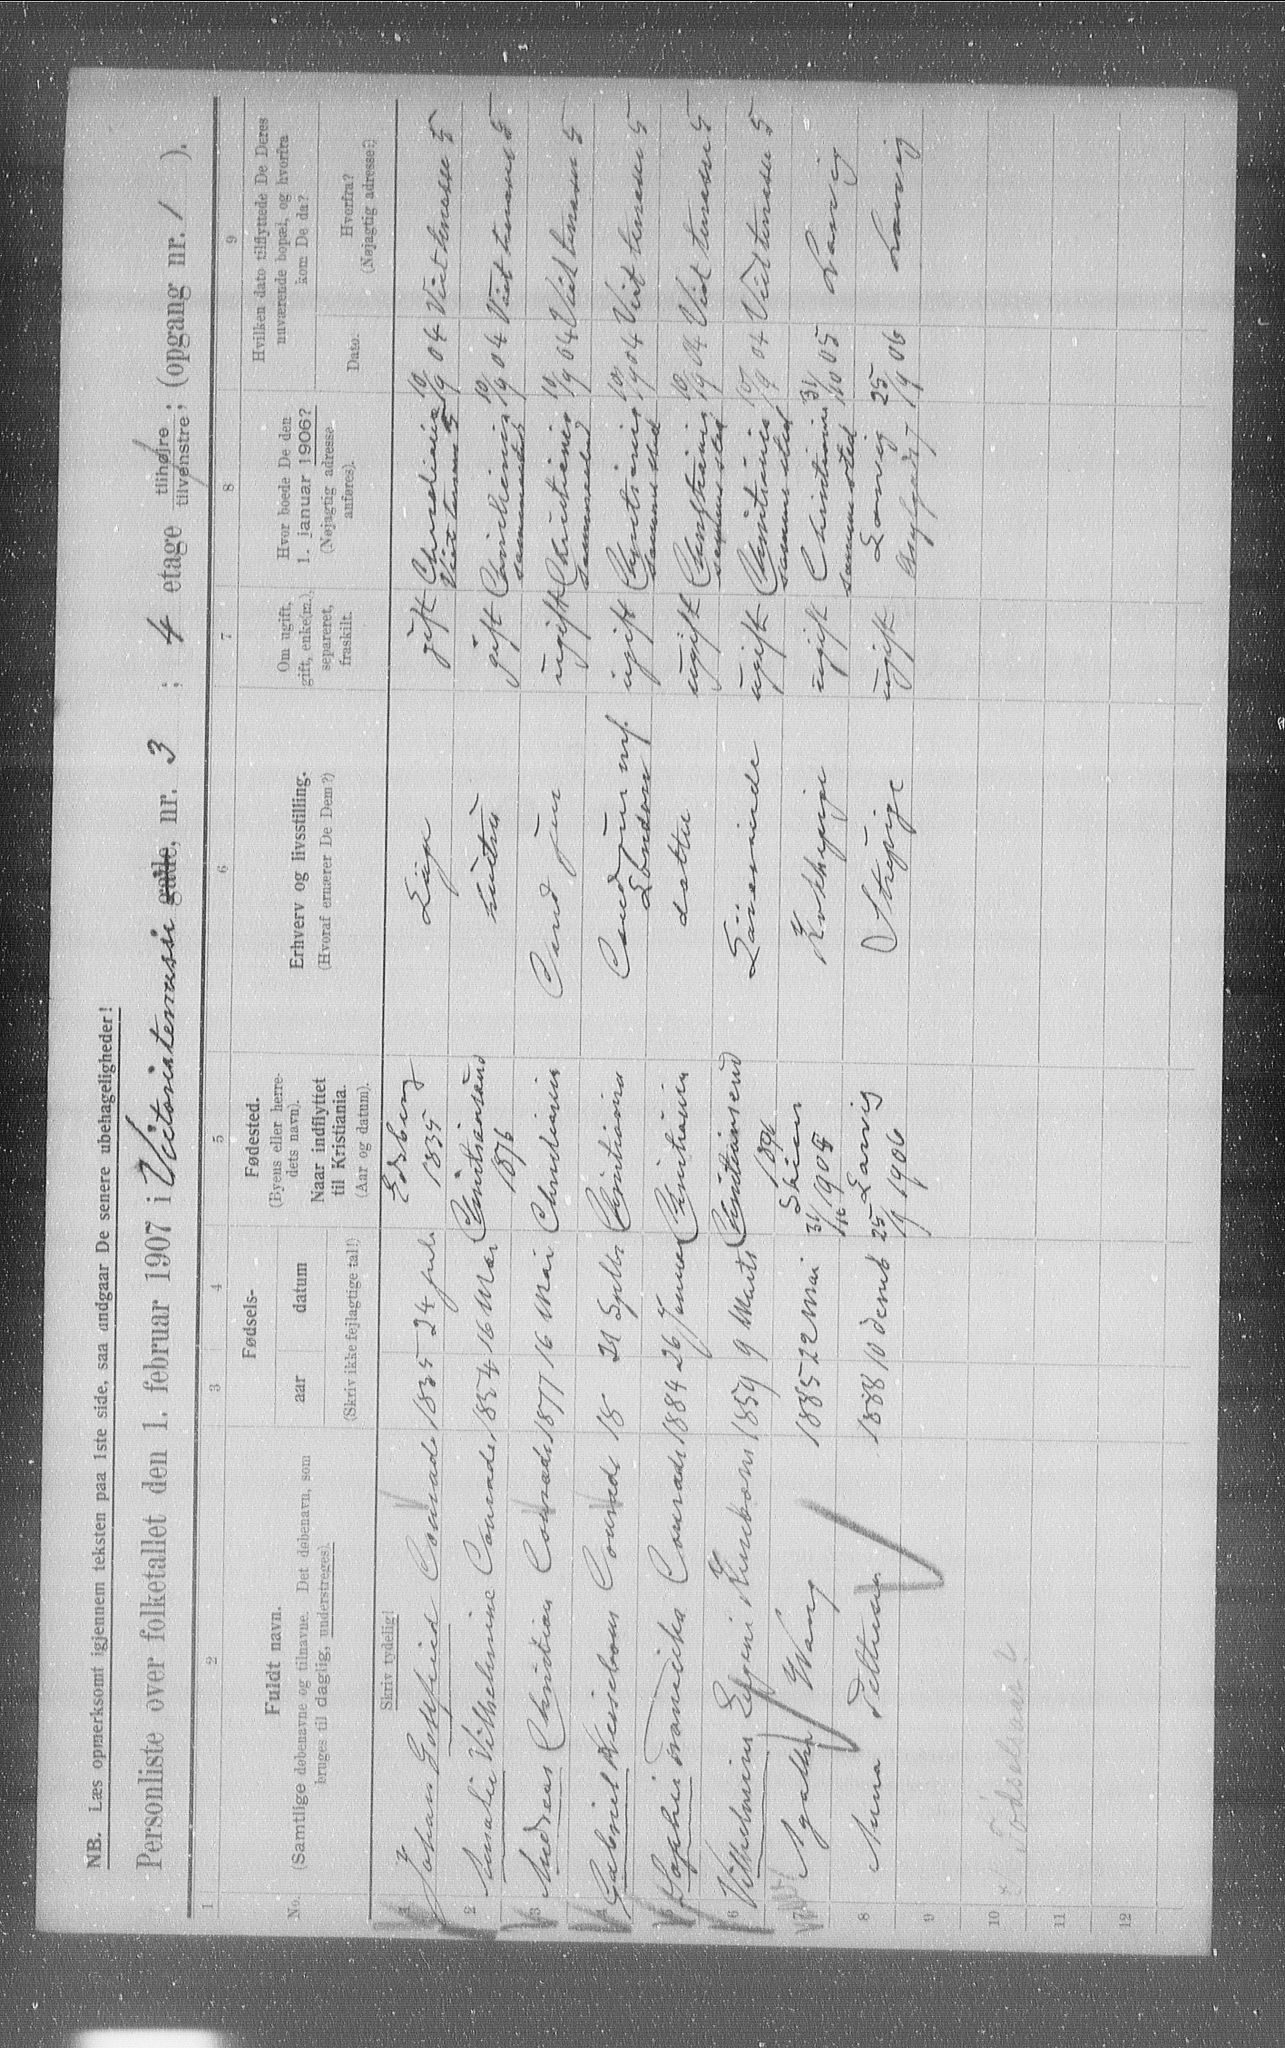 NB. Læs opmerksomt igjennem teksten paa 1ste side, saa undgaar De senere ubehageligheder!
Personliste over folketallet den 1. februar 1907 i Victoriaterrasse gade, nr. 3 ; 4 etage tilhøjre tilvenstre; (opgang nr. 1 ).
1 2 3 4 5 6 7 8 9
No. Fuldt navn. (Samtlige døbenavne og tilnavne. Det døbenavn, som bruges til daglig, understreges).
Fødsels- aar datum (Skriv ikke fejlagtige tal!)
Fødested. (Byens eller herredets navn). Naar indflyttet til Kristiania. (Aar og datum).
Erhverv og livsstilling. (Hvoraf ernærer De Dem?)
Om ugift, gift, enke(m.), separeret, fraskilt.
Hvor boede De den 1. januar 1906? (Nøjagtig adresse anføres).
Hvilken dato tilflyttede De Deres nuværende bopæl, og hvorfra kom De da?
Dato. Hvorfra? (Nøjagtig adresse:)
Skriv tydelig!
1 Johan Gottfried Conradi 1835 24 juli Edsberg 1835 Læge gift Christiania Vict terrasse 5 10/9 04 Vict terrasse 5
2 Amalie Vilhelmine Conradi 1854 16 Mai Christiansund 1876 hustru gift Christiania sammested 10/9 04 Vict terrasse 5
3 Andreas Christian Conradi 1877 16 Mai Christiania Cand jur ugift Christiania sammested 10/9 04 Vict terrasse 5
4 Gabriel Kierebom Conradi 18 21 Christiania Cand jur London ugift Christiania sammested 10/9 04 Vict terrasse 5
5 Sophie Conradi 1884 26 Januar Christiania datter ugift Christiania sammested 10/9 04 Vict terrasse 5
6 Vilhelmine 1859 9 Marts Christiansund 1896 Lærerinde ugift Christiania sammested 10/9 04 Vict terrasse 5
7 Agathe Wang 1885 22 Mai Skien 31/10 1905 Kokkepige ugift Christiania sammested 31/10 05 Larvig
8 Anna Pettersen 1888 10 decmb Larvig 25/9 1906 Stuepige ugift Larvig 25/9 06 Larvig
9
10
11
12